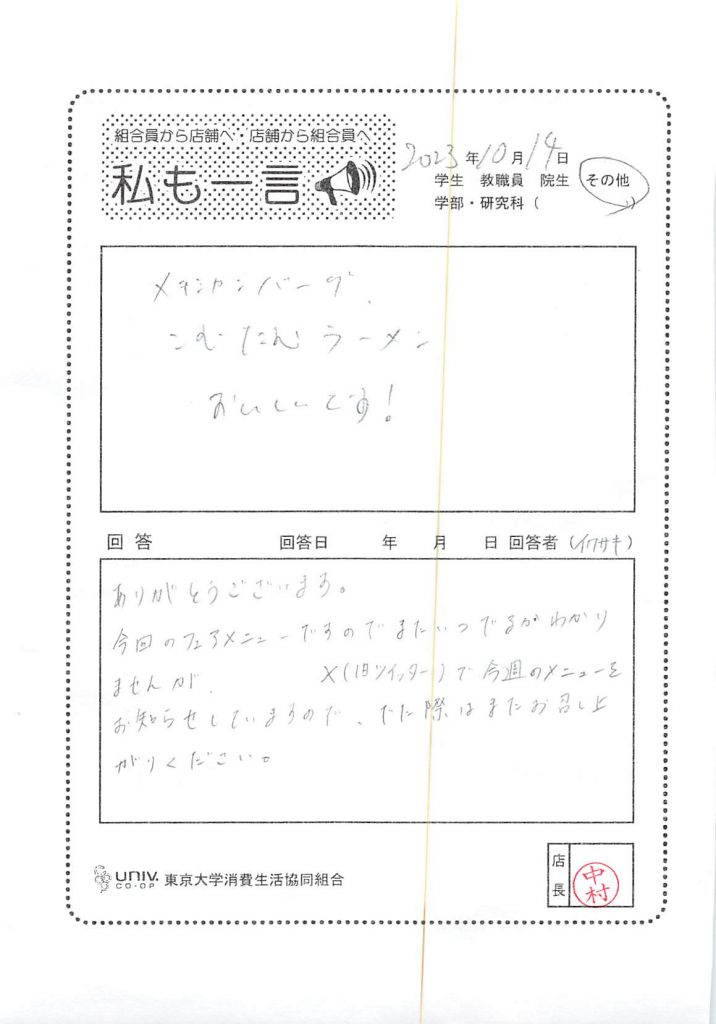 組合員から店舗へ・店舗から組合員へ
私も一言
2023年10月14日
学生 教職員 院生 その他
学部・研究科( )
メキシカンバーグ、
こむたんラーメン
おいしいです!
回答 回答日 年 月 日 回答者(イワサキ)
ありがとうございます。
今回のフェアメニューですのでまたいつでるかわかり
ませんが、 X(旧ツイッター)で今週のメニューを
お知らせしていますので、でた際はまたお召し上
がりください。
UNIV. CO-OP 東京大学消費生活協同組合
店長
中村